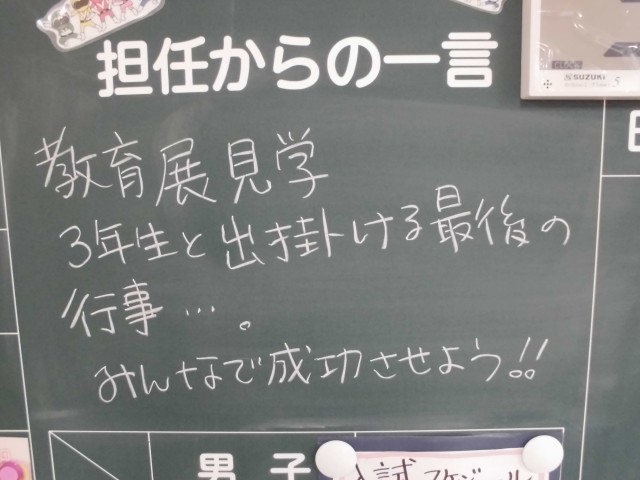 担任からの一言
SUZUKI
教育展見学
3年生と出掛ける最後の
行事…。
みんなで成功させよう!!
男子
入試スケジュール